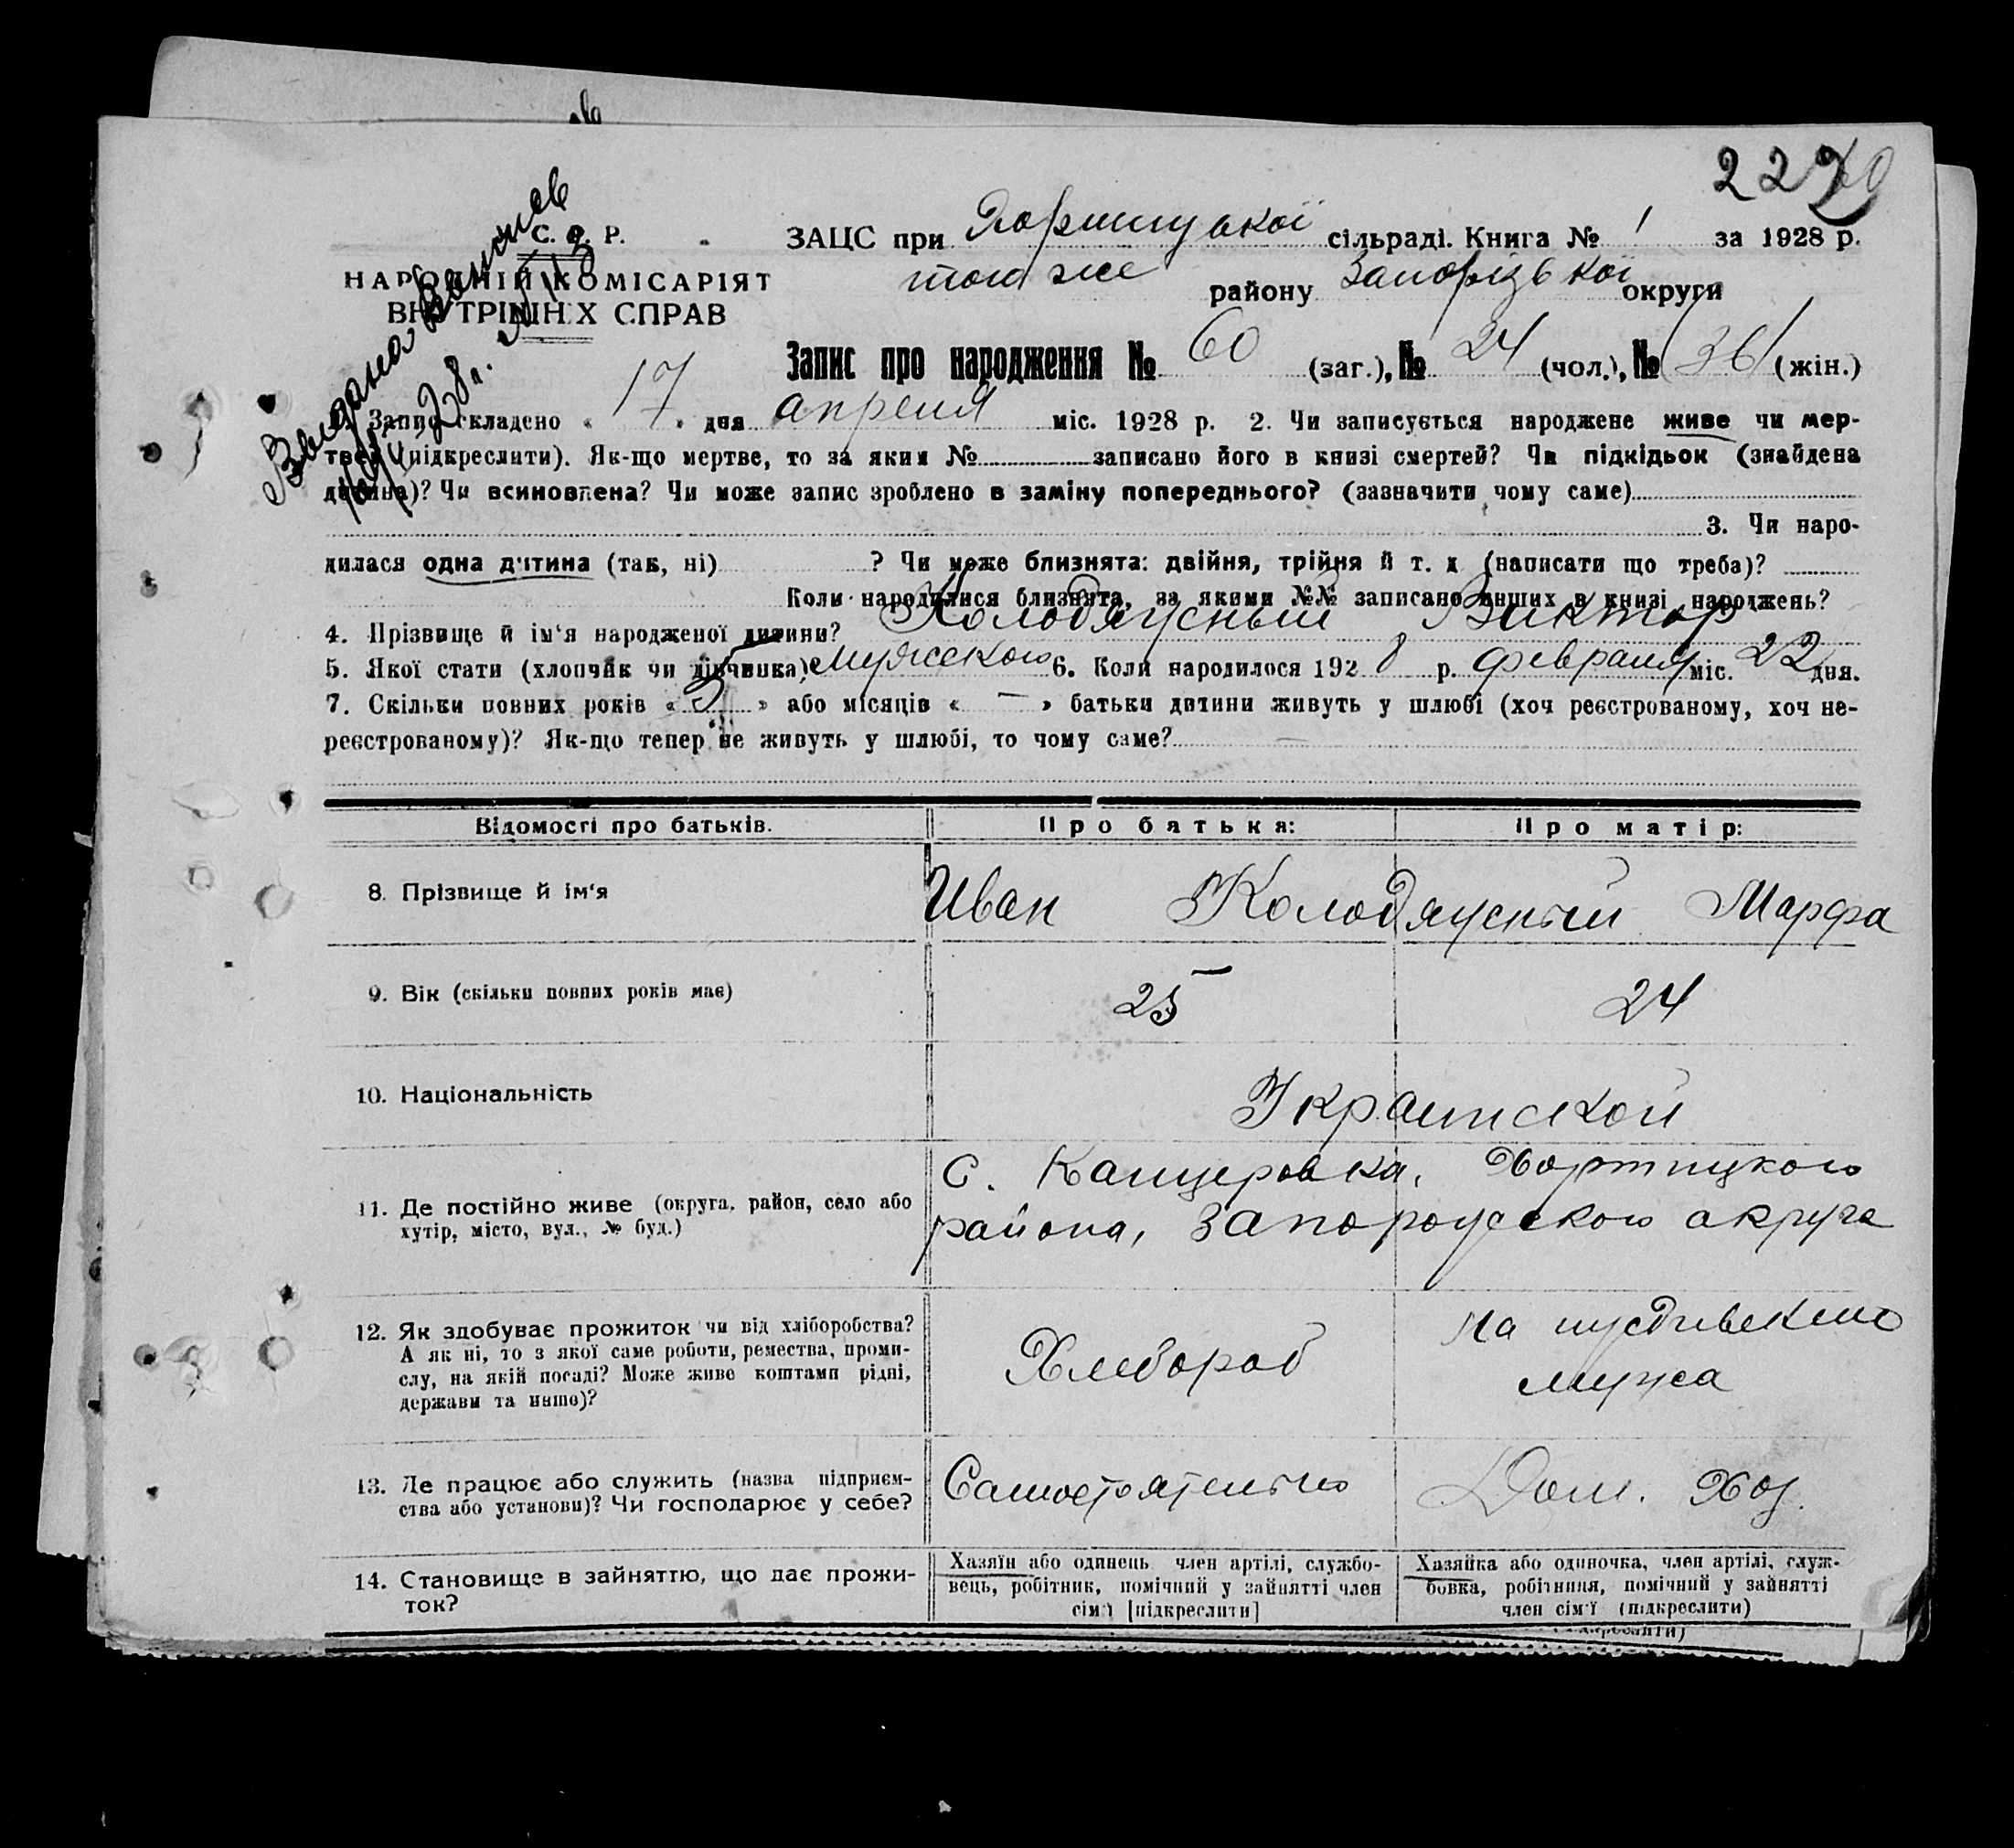 227
С. Р. Р.
НАРОДНІЙ КОМІСАРІЯТ
ВНУТРІШНІХ СПРАВ
Видана Выпись
ЗАЦС при Хортицької сільраді. Книга № 1 за 1928 р.
тоже району Запорізької округи
Запис про народження № 60 (заг.), № 24 (чол.), № 36 (жін.)
Запис складено «17» дня апреля міс. 1928 р. 2. Чи записується народжене живе чи мер-
тве (підкреслити). Як-що мертве, то за яким № записано його в книзі смертей? Чи підкідьок (знайдена
дитина)? Чи всиновлена? Чи може запис зроблено в заміну попереднього? (зазначити чому саме)
3. Чи наро-
дилася одна дитина (так, ні) ? Чи може близнята: двійня, трійня й т. д (написати що треба)?
Коли народилися близнята, за якими №№ записано инших в книзі народжень?
4. Прізвище й ім'я народженої дитини? Колодяжный Виктор
5. Якої стати (хлопчик чи дівчинка) мужского 6. Коли народилося 1928 р. февраля міс. 22 дня.
7. Скільки повних років «5» або місяців « — » батьки дитини живуть у шлюбі (хоч реєстрованому, хоч не-
реєстрованому)? Як-що тепер не живуть у шлюбі, то чому саме? —
Відомості про батьків. Про батька: Про матір:
8. Прізвище й ім'я Иван Колодяжный Марфа
9. Вік (скільки повних років має) 25 24
10. Національність Украинской
11. Де постійно живе (округа, район, село або
хутір, місто, вул., № буд.)
С. Канцеровка, Хортицкого
района, Запорожского округа
12. Як здобуває прожиток чи від хліборобства?
А як ні, то з якої саме роботи, ремества, проми-
слу, на якій посаді? Може живе коштами рідні,
держави та инше)?
Хлебороб
На иждивении
мужа
13. Де працює або служить (назва підприєм-
ства або установи)? Чи господарює у себе?
Самостоятельно
Дом. Хоз.
14. Становище в зайняттю, що дає прожи-
ток?
Хазяїн або одинець член артілі, службо-
вець, робітник, помічний у зайнятті член
сім'ї [підкреслити]
Хазяйка або одиночка, член артілі, служ-
бовка, робітниця, помічний у зайнятті
член сім'ї (підкреслити)